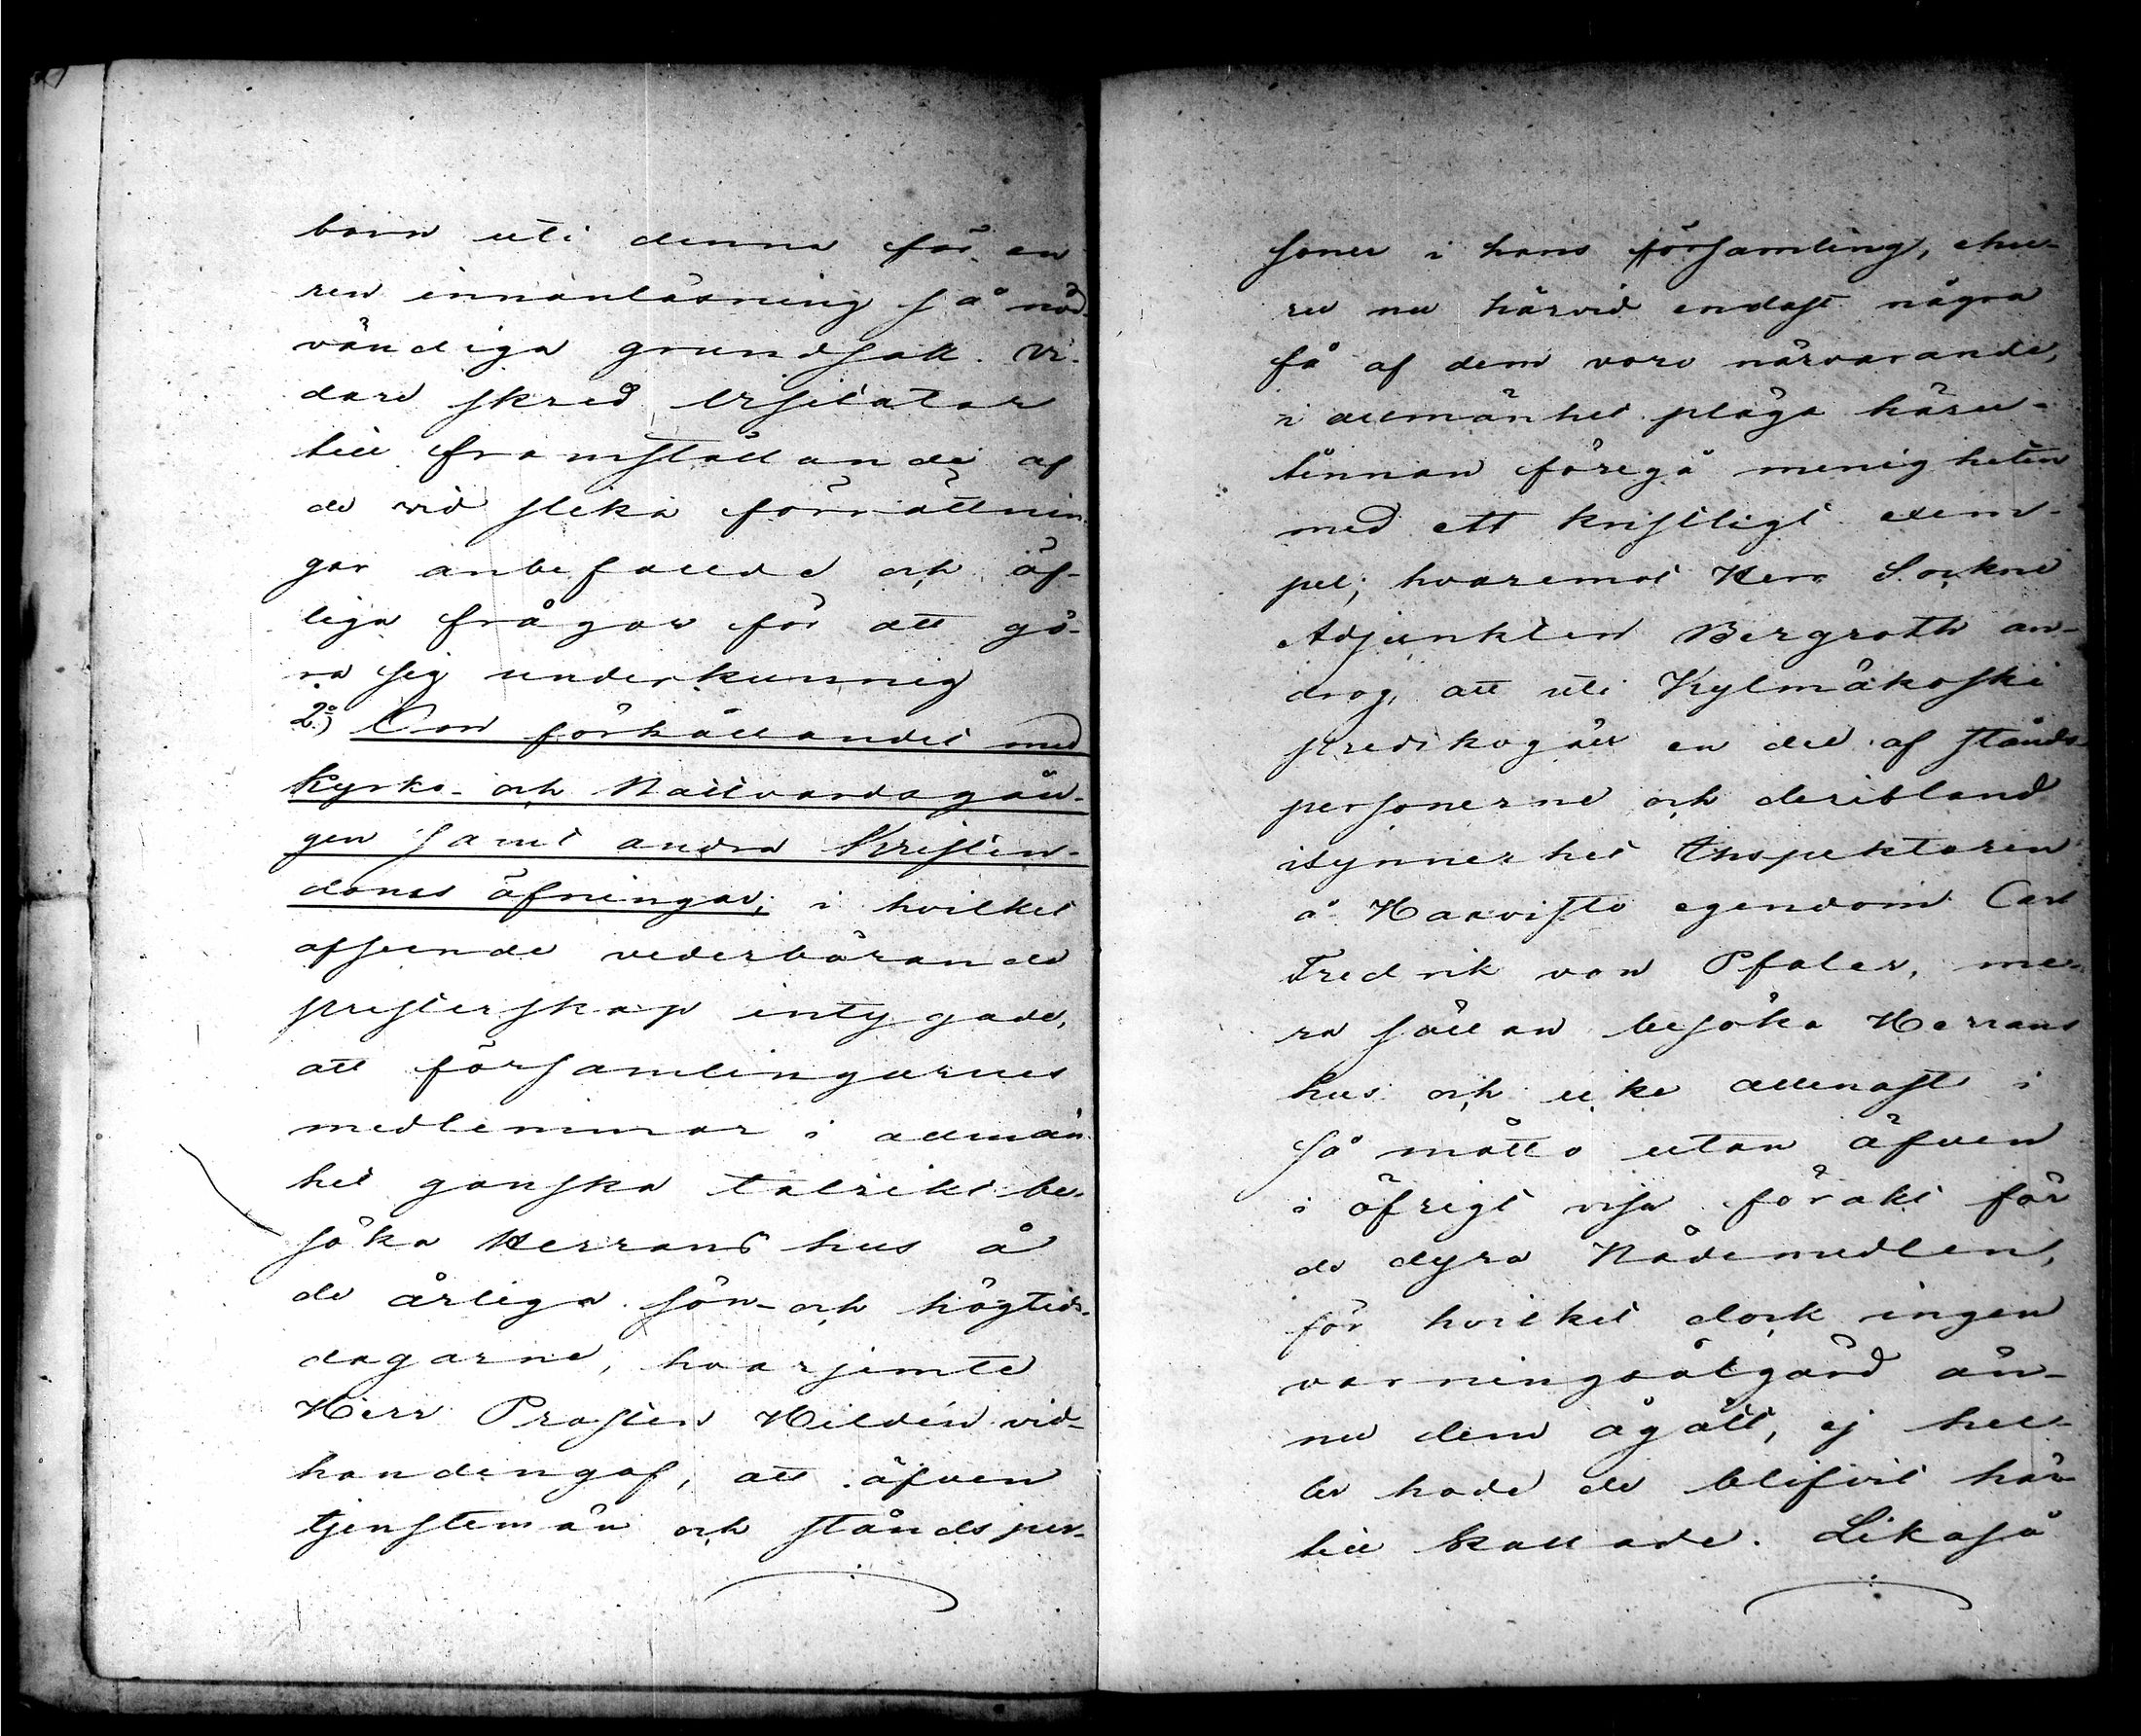 barn uti denna för en
ren innanläsning så nöd-
vändiga grundsak. Vi-
dare skred Visitator
till framställande af
de vid slika förrättnin-
gar anbefallde och öf-
liga frågor för att gö-
ra sig underkunnig
2o) Om förhållandet med
Kyrko- och Nattvardsgån-
gen samt andra Kristen-
doms öfningar; i hvilket
afseende vederbörande
presterskap intygade,
att församlingarnes
medlemmar i allmän-
het ganska talrikt be-
söka Herrans hus å
de årliga sön- och högtids-
dagarne, hvarjemte
Herr Prosten Hildén vid-
handengaf, att äfven
tjenstemän och ståndsper-
soner i hans församling, ehu-
ru nu härvid endast några
få af dem voro närvarande,
i allmänhet pläga häru-
tinnan föregå menigheten
med ett kristligt exem-
pel; hvaremot Herr Sockne
Adjunkten Bergroth an-
drog, att uti Kylmäkoski
predikogäll en del af stånds
personerne och deribland
isynnerhet Inspektoren
å Haavisto egendom Carl
Fredrik von Pfaler, me-
ra sällan besöka Herrans
hus och icke allenast i
så måtto utan äfven
i öfrigt visa förakt för
de dyra Nådemedlen,
för hvilket dock ingen
varningsåtgärd än-
nu dem ågått, ej hel-
ler hade de blifvit här-
till kallade. Likaså